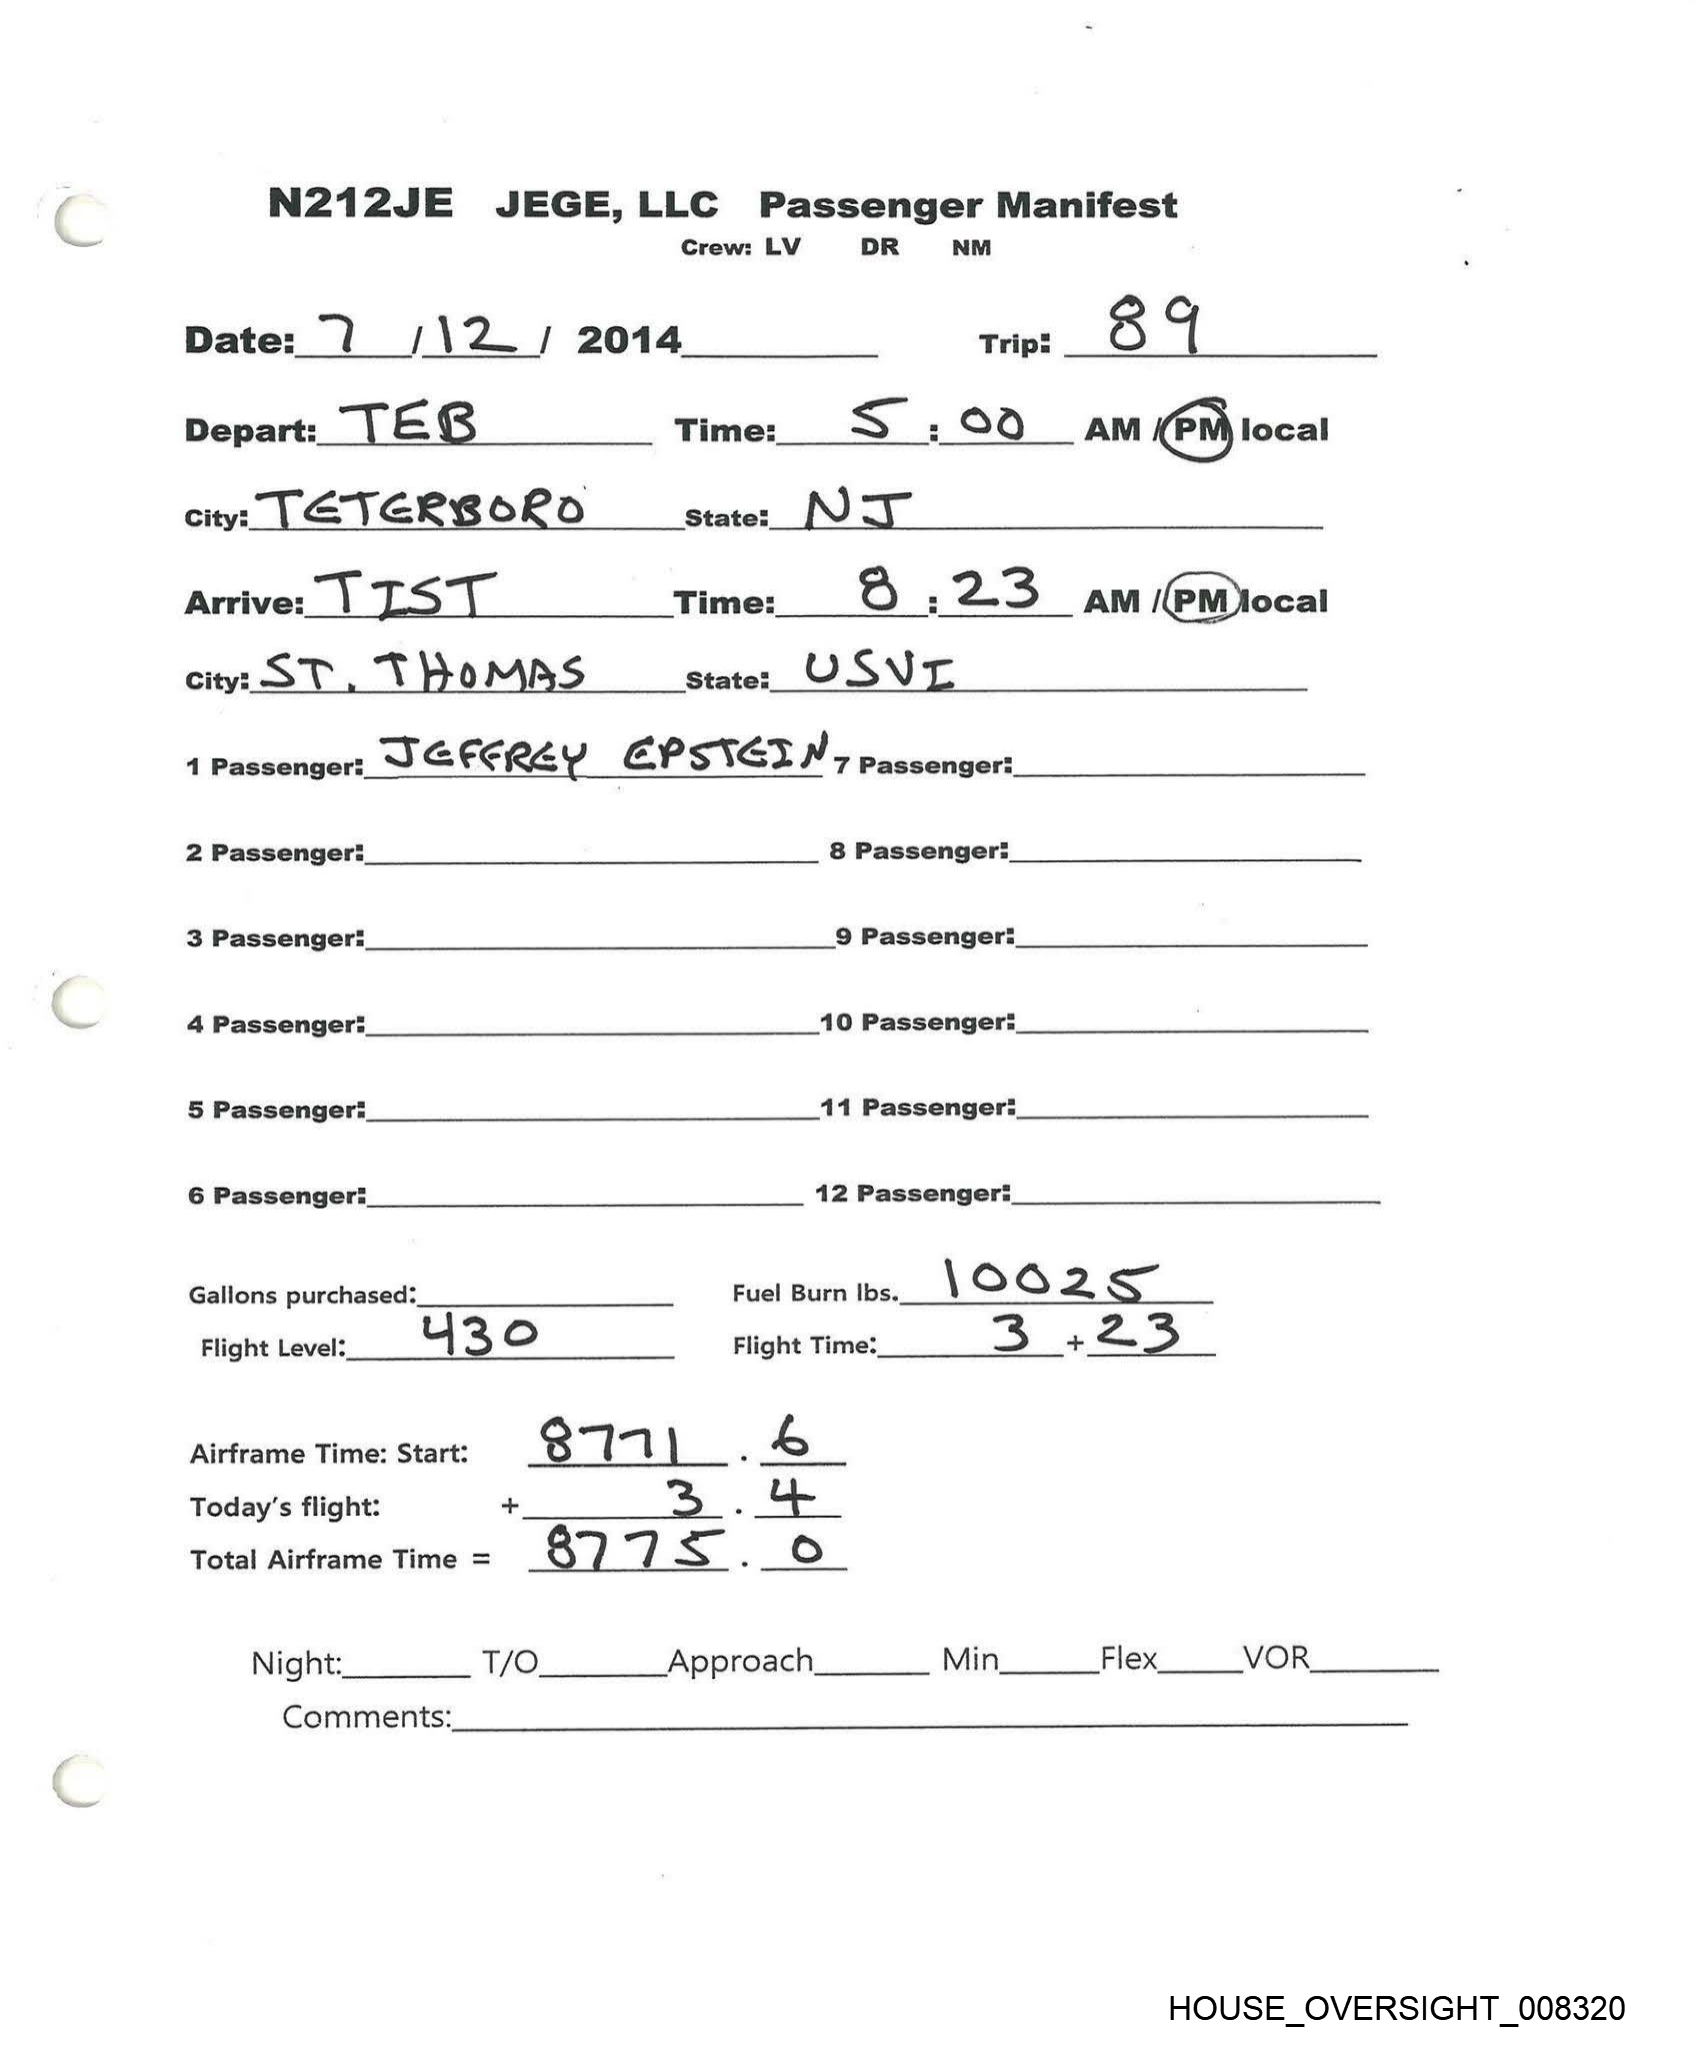 N212JE JEGE, LLC Passenger Manifest
Crew: LV DR NM
Date: 7 / 12 / 2014 Trip: 89
Depart: TEB Time: 5 : 00 AM / PM local
City: TETERBORO State: NJ
Arrive: TIST Time: 8 : 23 AM / PM local
City: ST. THOMAS State: USVI
1 Passenger: JEFFREY EPSTEIN 7 Passenger:
2 Passenger: 8 Passenger:
3 Passenger: 9 Passenger:
4 Passenger: 10 Passenger:
5 Passenger: 11 Passenger:
6 Passenger: 12 Passenger:
Gallons purchased: Fuel Burn lbs. 10025
Flight Level: 430 Flight Time: 3 + 23
Airframe Time: Start: 8771 . 6
Today's flight: + 3 . 4
Total Airframe Time = 8775 . 0
Night: T/O Approach Min Flex VOR
Comments:
HOUSE_OVERSIGHT_008320